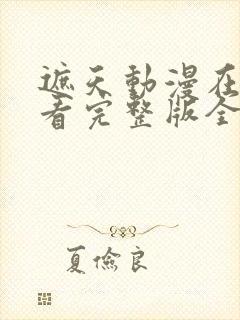 遮天動漫在
看完整版全
夏儉良